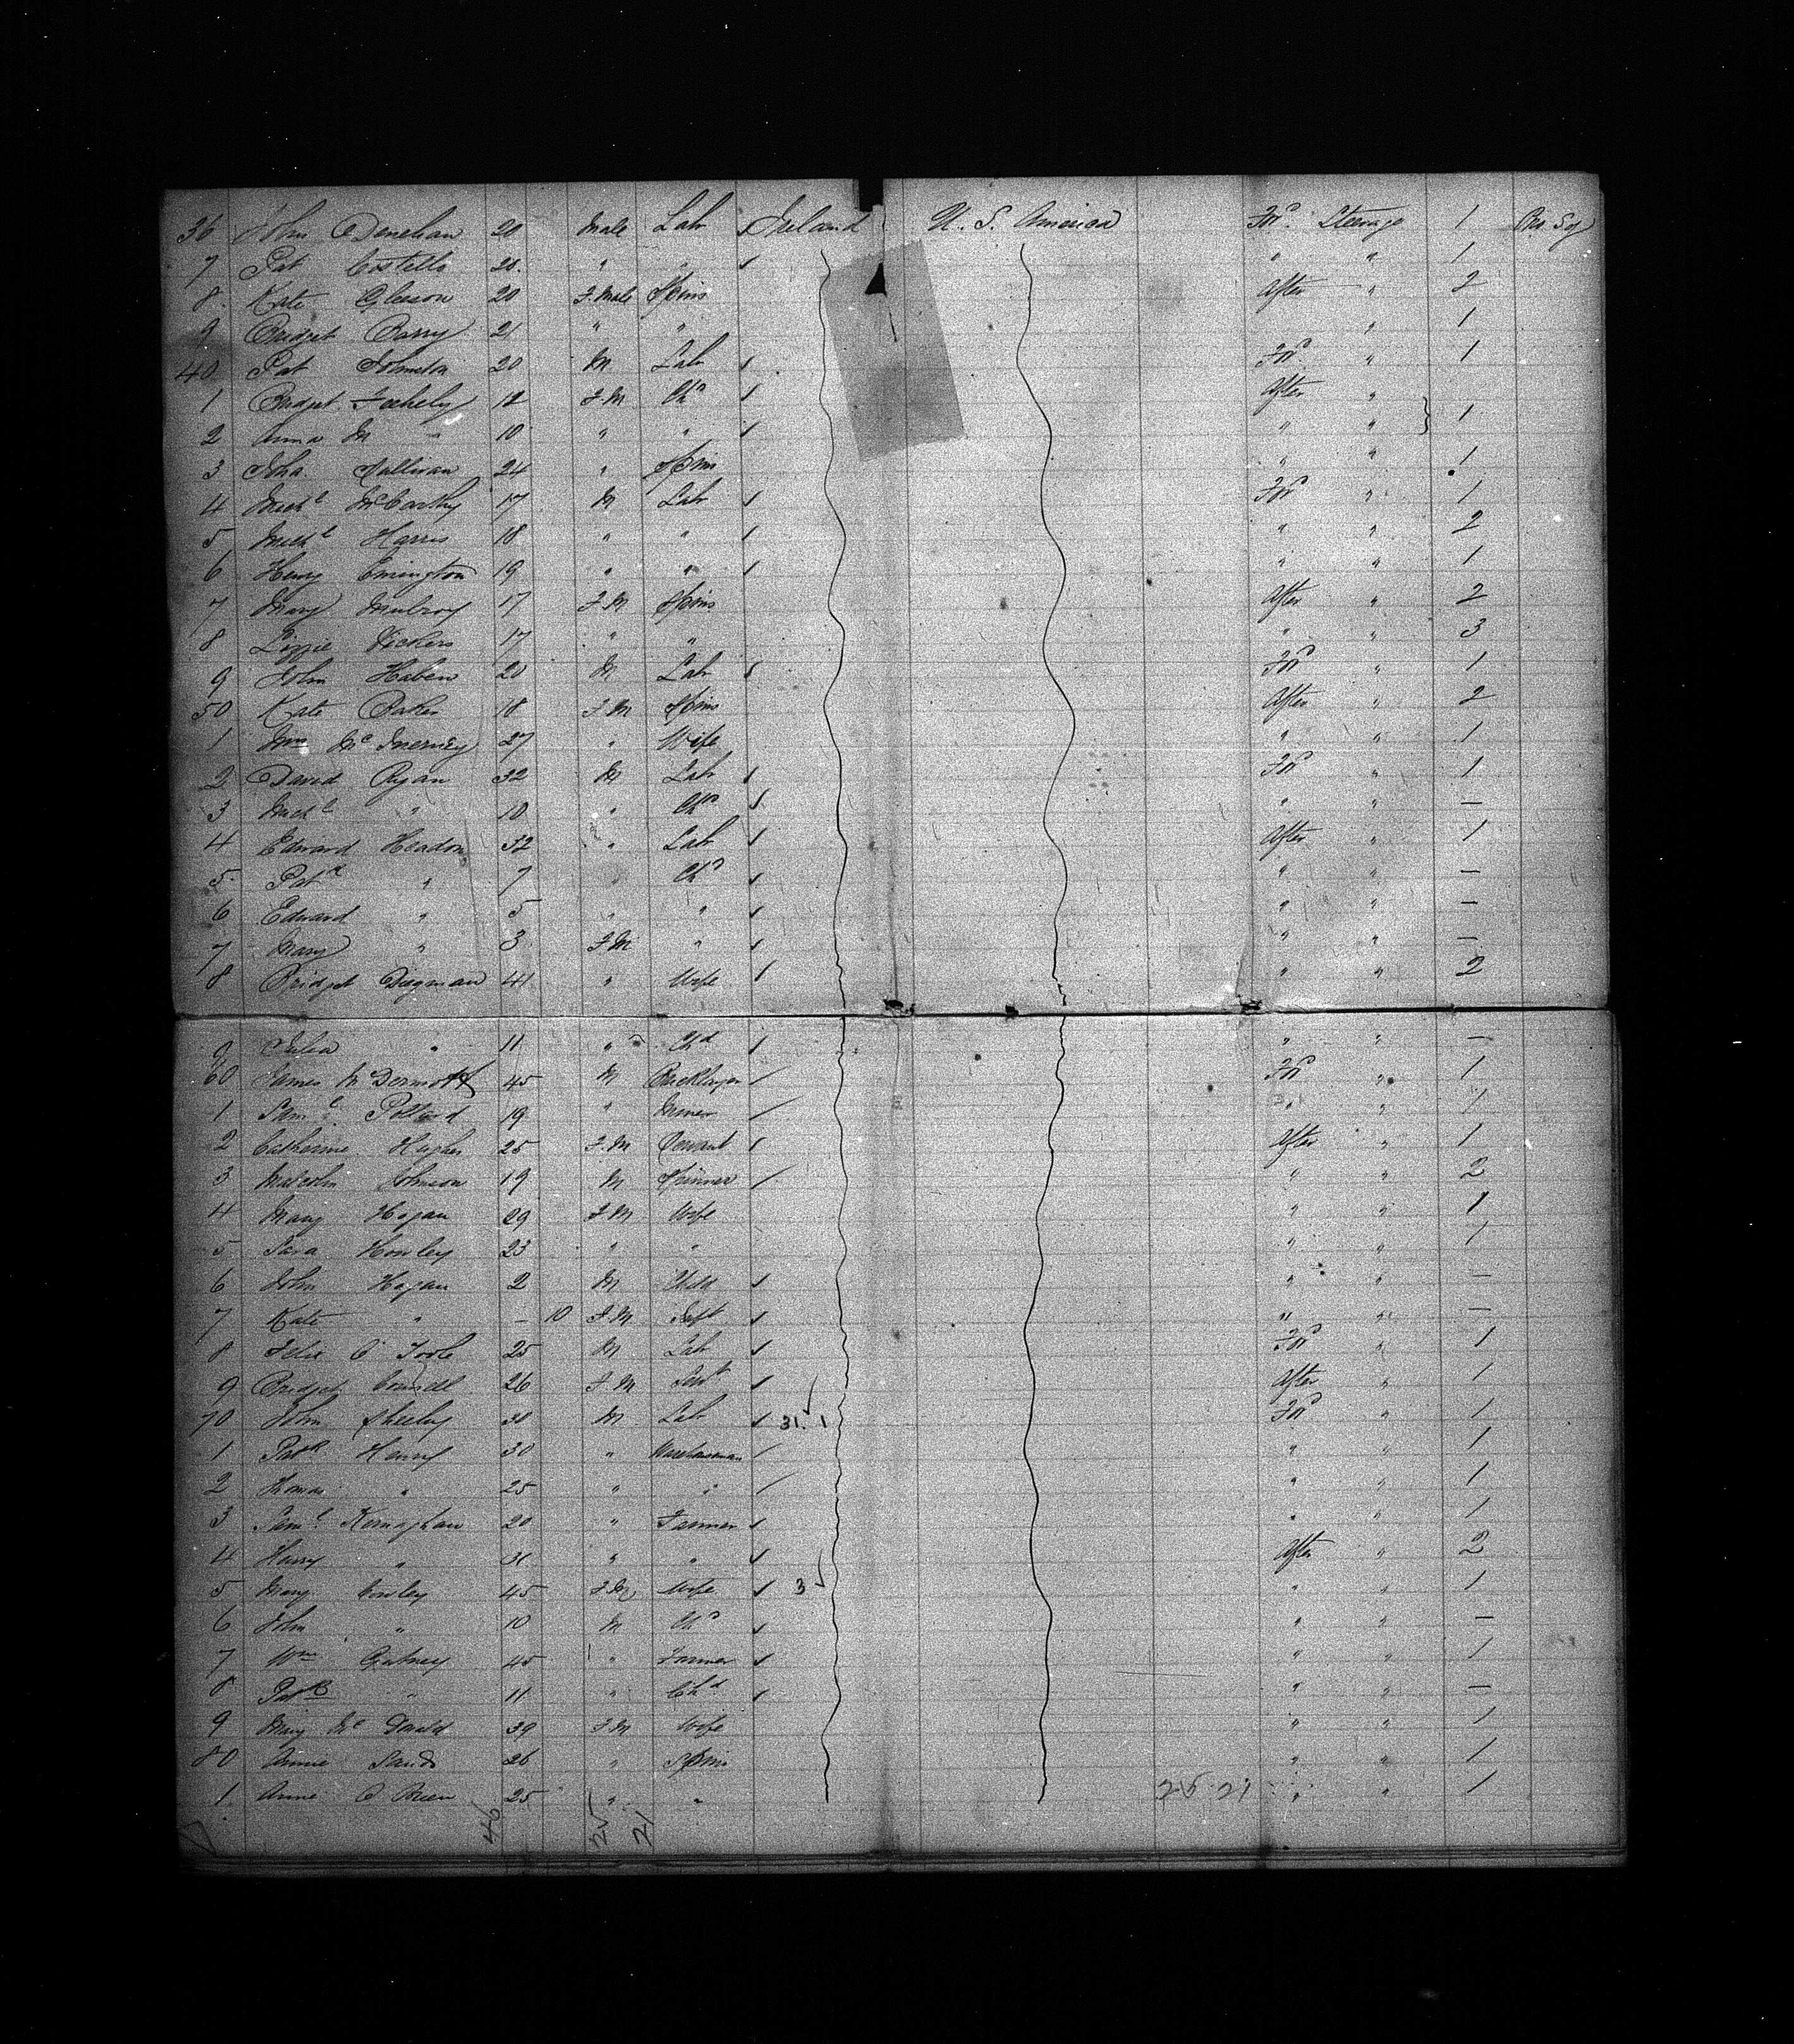 36 John Denehan 20 Male Lab Ireland U. S. America For'd Steerage 1 Pro. Soj
7 Pat Costello 20 " " " " 1
8 Kate Gleeson 20 F. Male Spins After " 2
9 Bridget Barry 21 " " " 1
40 Pat Johnston 20 M Lab For'd " 1
1 Bridget 12 F. M Ch'd After " } 1
2 Anna M " 10 " " " "
3 Joha. Sullivan 24 " Spins " " 1
4 Mich'l McCarthy 17 M Lab For'd " 1
5 Mich'l Harris 18 " " " " 2
6 Henry Emington 19 " " " " 1
7 Mary Mulroy 17 F. M Spins After " 2
8 Lizzie Vickers 17 " " " " 3
9 John Haben 20 M Lab For'd " 1
50 Kate Baker 18 F. M Spins After " 2
1 Mrs McInerney 27 " Wife " " 1
2 David Ryan 32 M Lab For'd " 1
3 Mich'l " 10 " Ch'd " " —
4 Edward Headon 32 " Lab After " 1
5 Pat'k " 7 " Ch'd " " —
6 Edward " 5 " " " " —
7 Mary " 3 F. M " " " —
8 Bridget Dugman 41 " Wife " " 2
9 Julia " 11 " Ch'd " " —
60 James McDermott 45 M Bricklayer For'd " 1
1 Sam'l Pollard 19 " Miner " " 1
2 Catherine Hughes 25 F. M Servant After " 1
3 Malcolm Johnson 19 M Spinner " " 2
4 Mary Hogan 29 F. M Wife " " 1
5 Sara Howley 23 " " " " 1
6 John Hogan 2 M Child " " —
7 Kate " – 10 F. M Inft " " —
8 Felix O'Toole 25 M Lab For'd " 1
9 Bridget Connell 26 F. M Serv't After " 1
70 John Sheehy 30 M Lab 31. 1 For'd " 1
1 Pat'k Henry 30 " Warehouseman " " 1
2 Thomas " 25 " " " " 1
3 Sam'l Kernaghan 20 " Farmer " " 1
4 Harry " 31 " " After " 2
5 Mary Conley 45 F. M Wife 3 " " 1
6 John " 10 M Ch'd " " —
7 Wm Gatney 45 " Farmer " " 1
8 Pat'k " 11 " Ch'd " " —
9 Mary Mc 39 F. M Wife " " 1
80 Annie Sands 26 " Spins " " 1
1 Anne O'Brien 25 " " 25. 21 " " 1
46 25 21